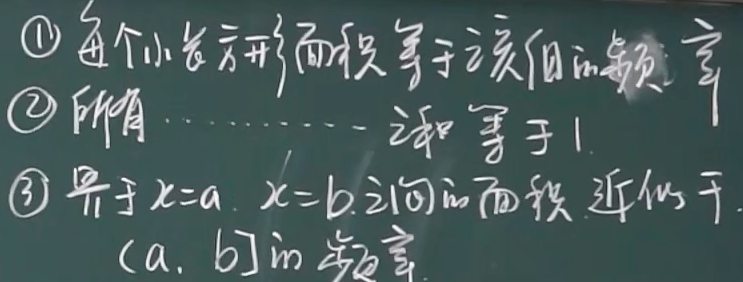 ① 每个小长方形面积等于该组的频率
② 所有 ············ 之和等于1.
③ 界于x=a. x=b.之间的面积.近似于.
(a. b]的频率.